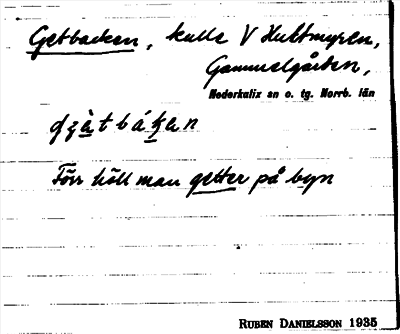 Getbacken, kulle V Hultmyren,
Gammelgården,
Nederkalix sn o. tg. Norrb. län
Förr höll man getter på byn
RUBEN DANIELSSON 1935